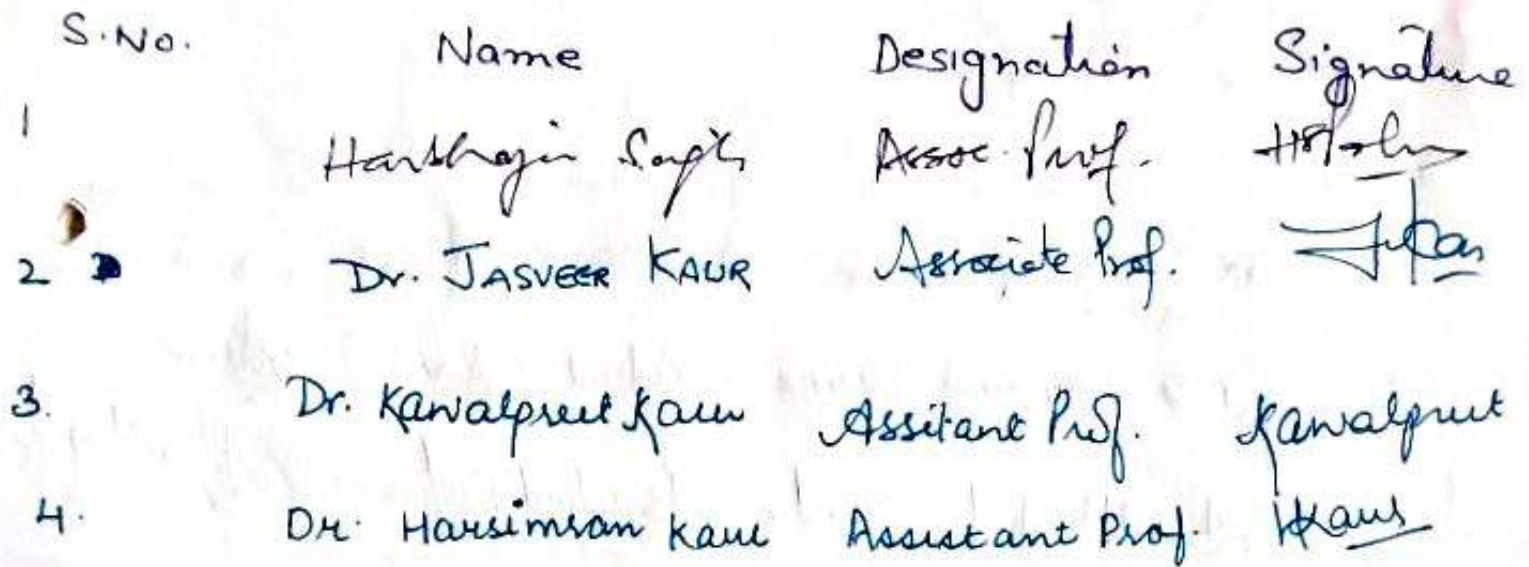 S.No. Name Designation Signature
1 Harbhajan Singh Assoc. Prof.
2 Dr. JASVEER KAUR Associate Prof.
3. Dr. Kawalpreet Kaur Assitant Prof. Kawalpreet
4. Dr. Harsimran Kaur Assistant Prof. HKaur